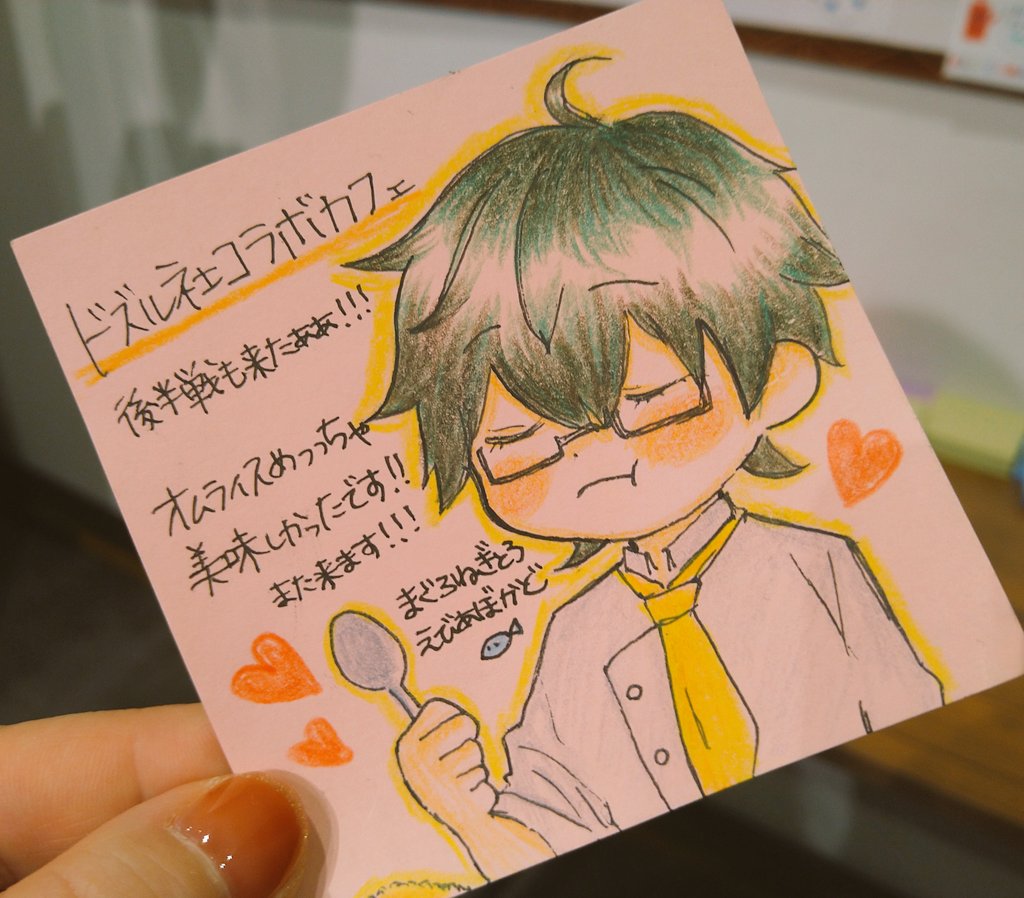 ドズル社コラボカフェ
後半戦も来たぁぁ!!!
オムライスめっっちゃ
美味しかったです!!
また来ます!!!
まぐろねぎとろ
えびあぼかど